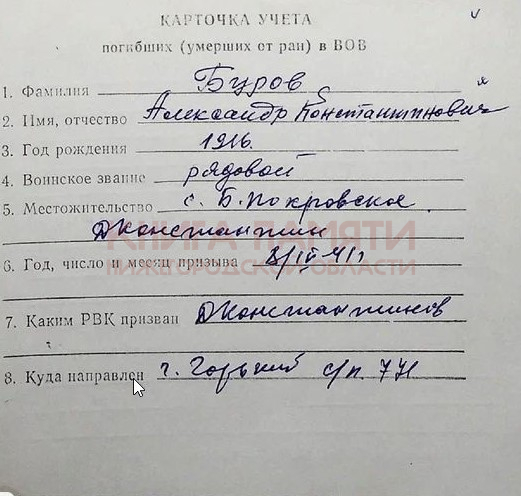 КАРТОЧКА УЧЕТА
погибших (умерших от ран) в ВОВ
1. Фамилия Буров
2. Имя, отчество Александр Константинович
3. Год рождения 1916.
4. Воинское звание рядовой
5. Местожительство с. Б. Покровское
Дконстантин
КНИГА ПАМЯТИ
НИЖЕГОРОДСКОЙ ОБЛАСТИ
6. Год, число и месяц призыва
7. Каким РВК призван Дконстантинов
8. Куда направлен г. Горький с/п.